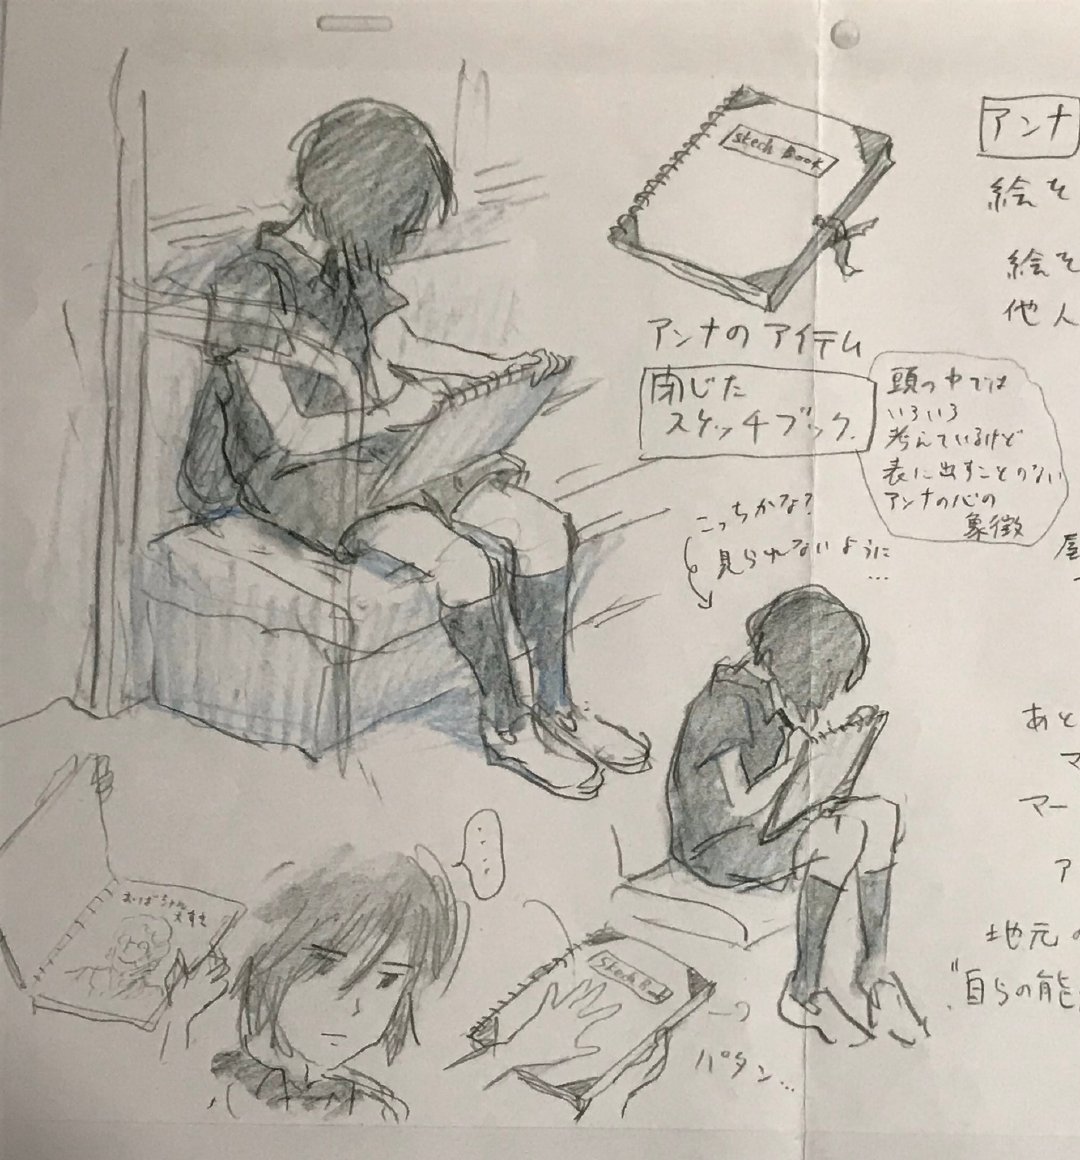 Skech Book
アンナ
絵を
絵を
他人
アンナの アイテム
閉じた
スケッチブック.
頭の中では
いろいろ
考えているけど
表に出すことのない
アンナの心の
象徴
こっちかな?
見られないように
...
あと
マ
マー
ア
地元の
"自らの能
おばちゃん
Skech B
パタン...